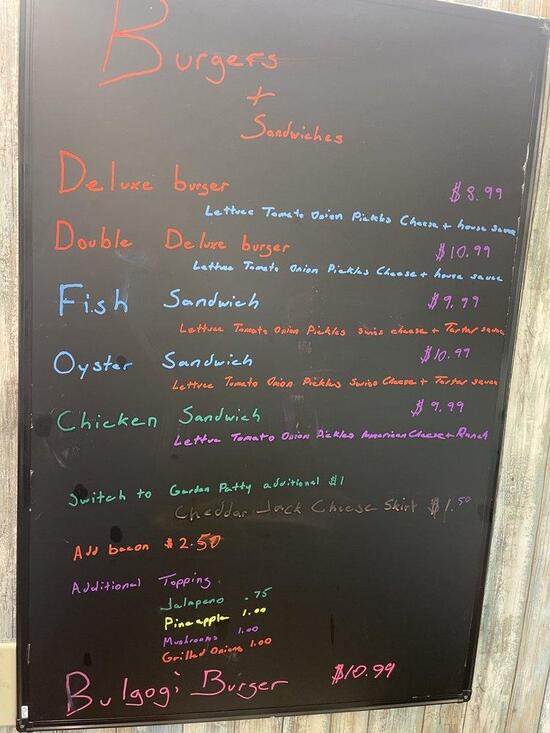 Burgers
+
Sandwiches
Deluxe burger $8.99
Lettuce Tomato Onion Pickles Cheese + house sauce
Double Deluxe burger $10.99
Lettuce Tomato Onion Pickles Cheese + house sauce
Fish Sandwich $9.99
Lettuce Tomato Onion Pickles Swiss cheese + Tartar sauce
Oyster Sandwich $10.99
Lettuce Tomato Onion Pickles Swiss Cheese + Tartar sauce
Chicken Sandwich $9.99
Lettue Tomato Onion Pickles American Cheese + Ranch
Switch to Gardan Patty additional $1
Cheddar Jack Cheese Skirt $1.50
Add bacon $2.50
Additional Topping
Jalapeno .75
Pineapple 1.00
Mushrooms 1.00
Grilled Onions 1.00
Bulgogi Burger $10.99